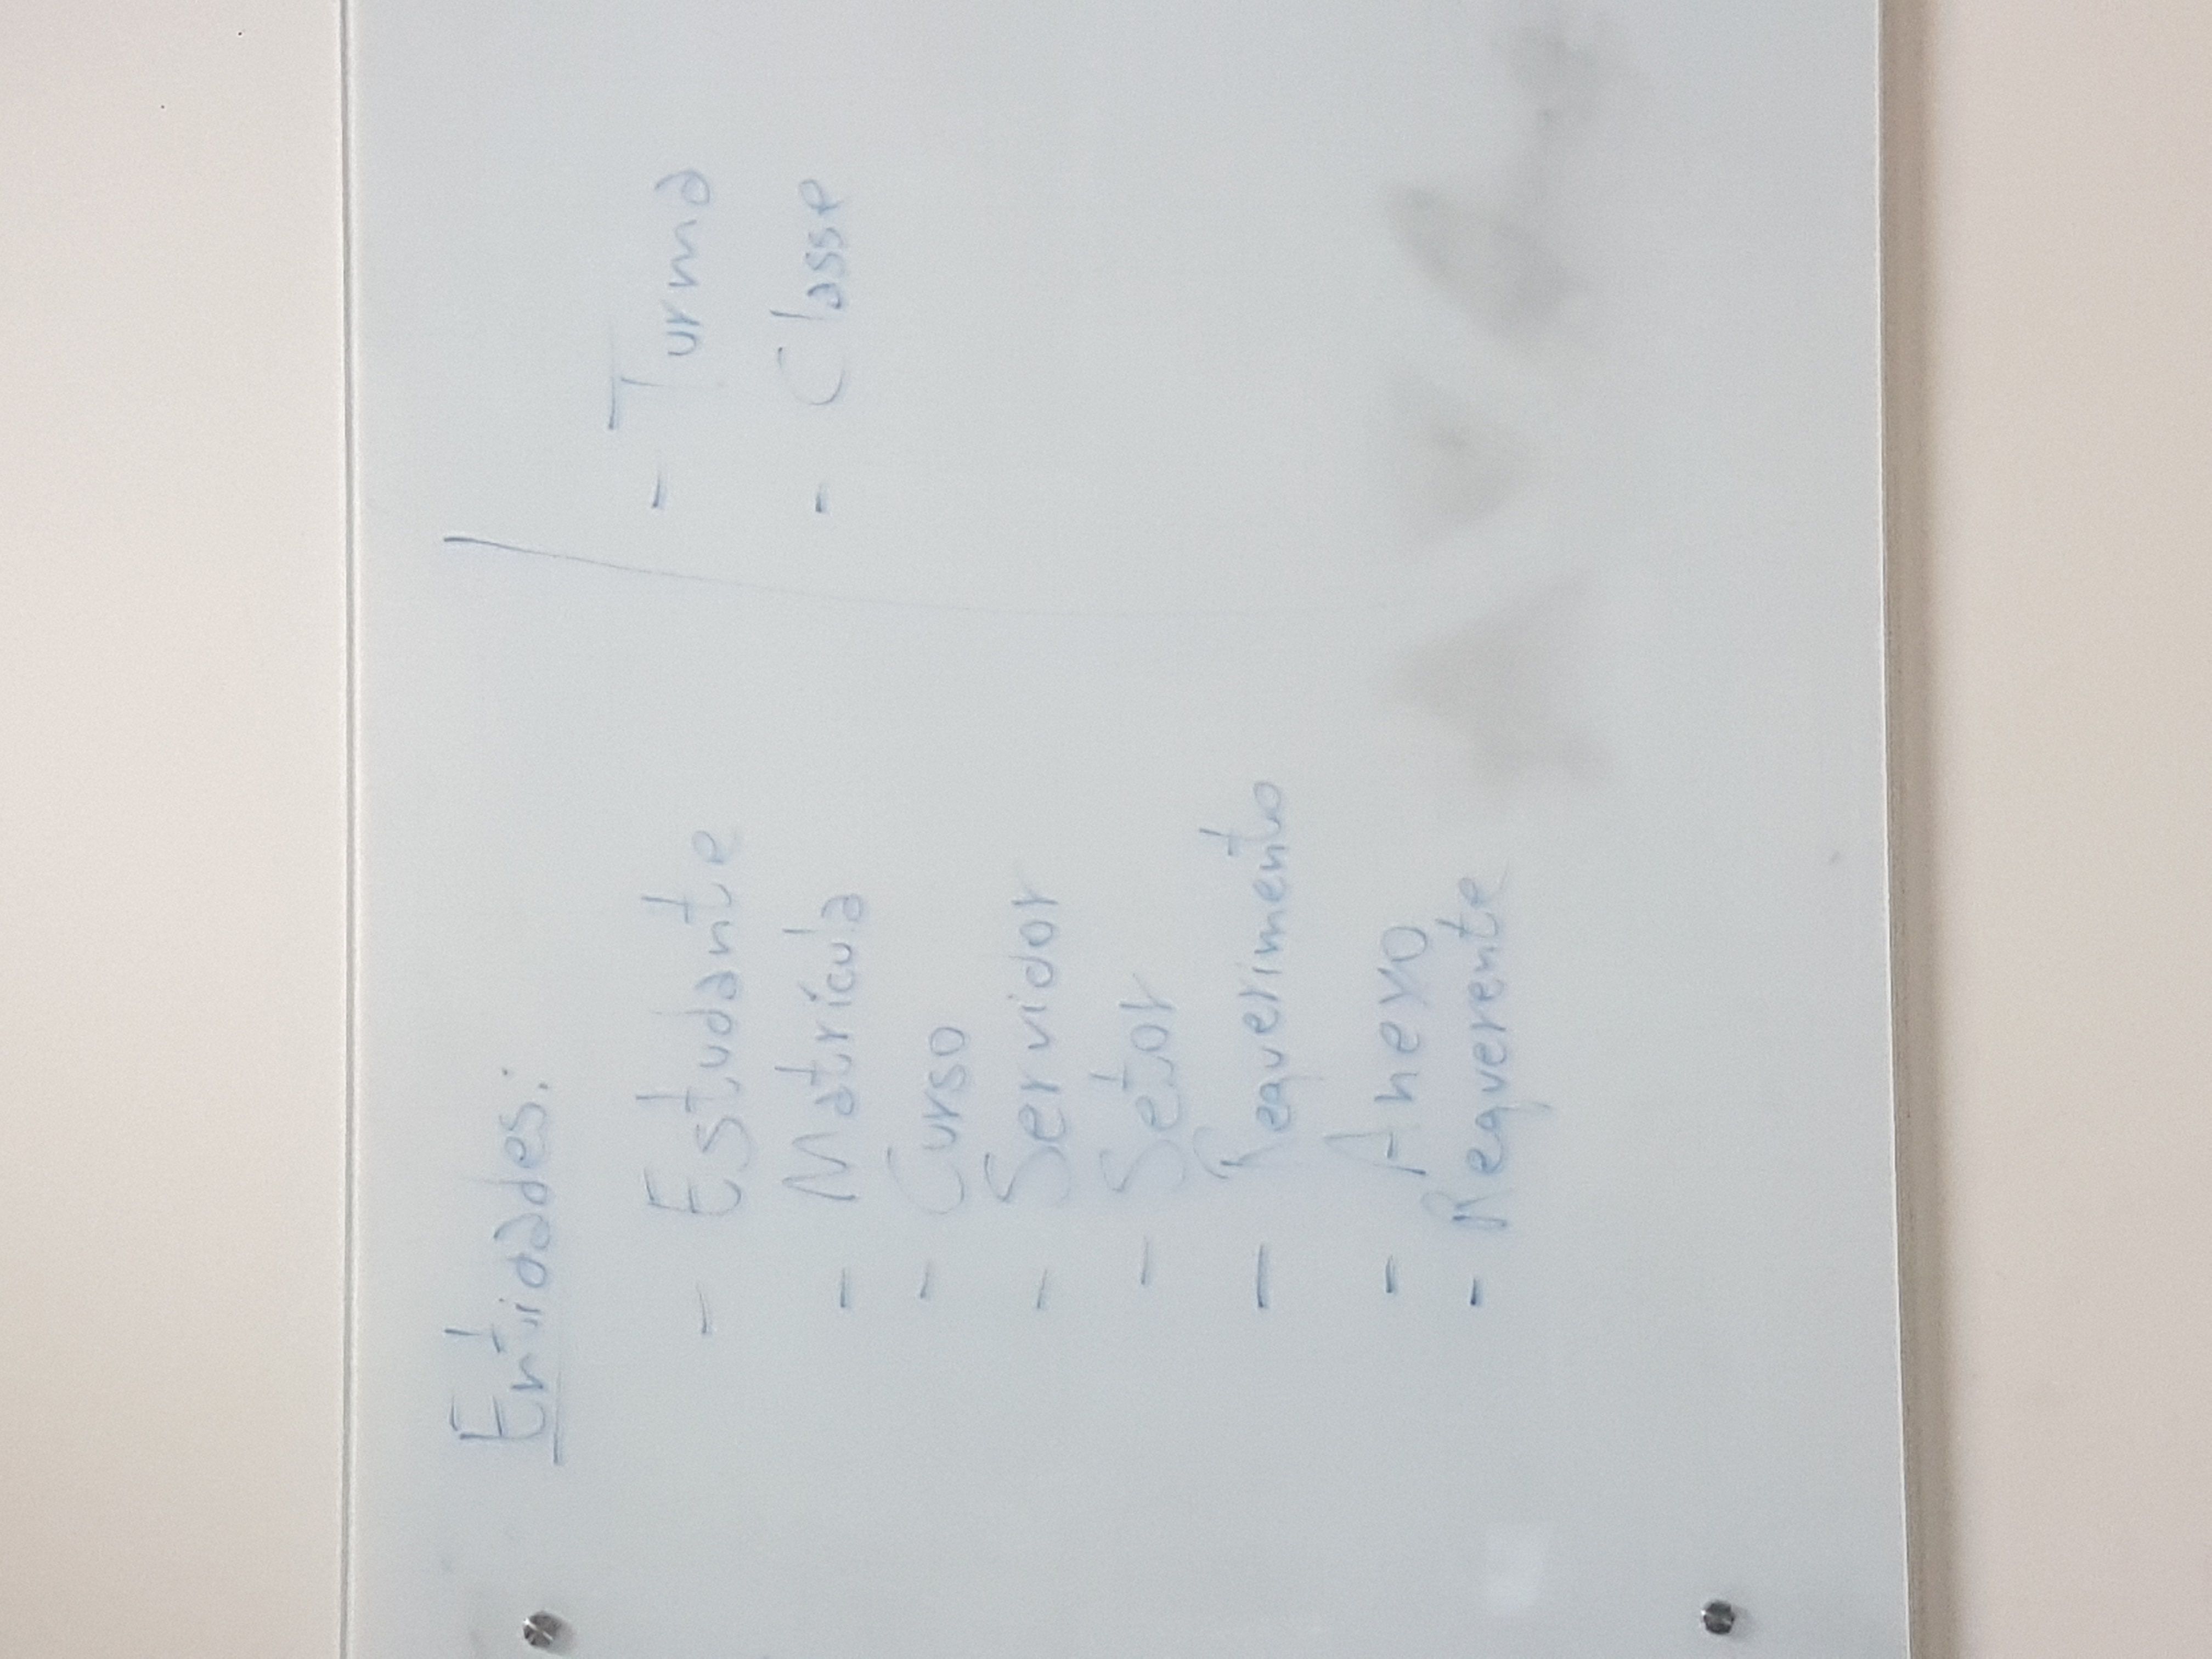 Entidades:
- Estudante
- Matrícula
- Curso
- Servidor
- Setor
- Requerimento
- Anexo
- Requerente
- Turma
- Classe